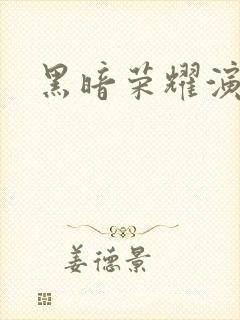 黑暗荣耀演
姜德景